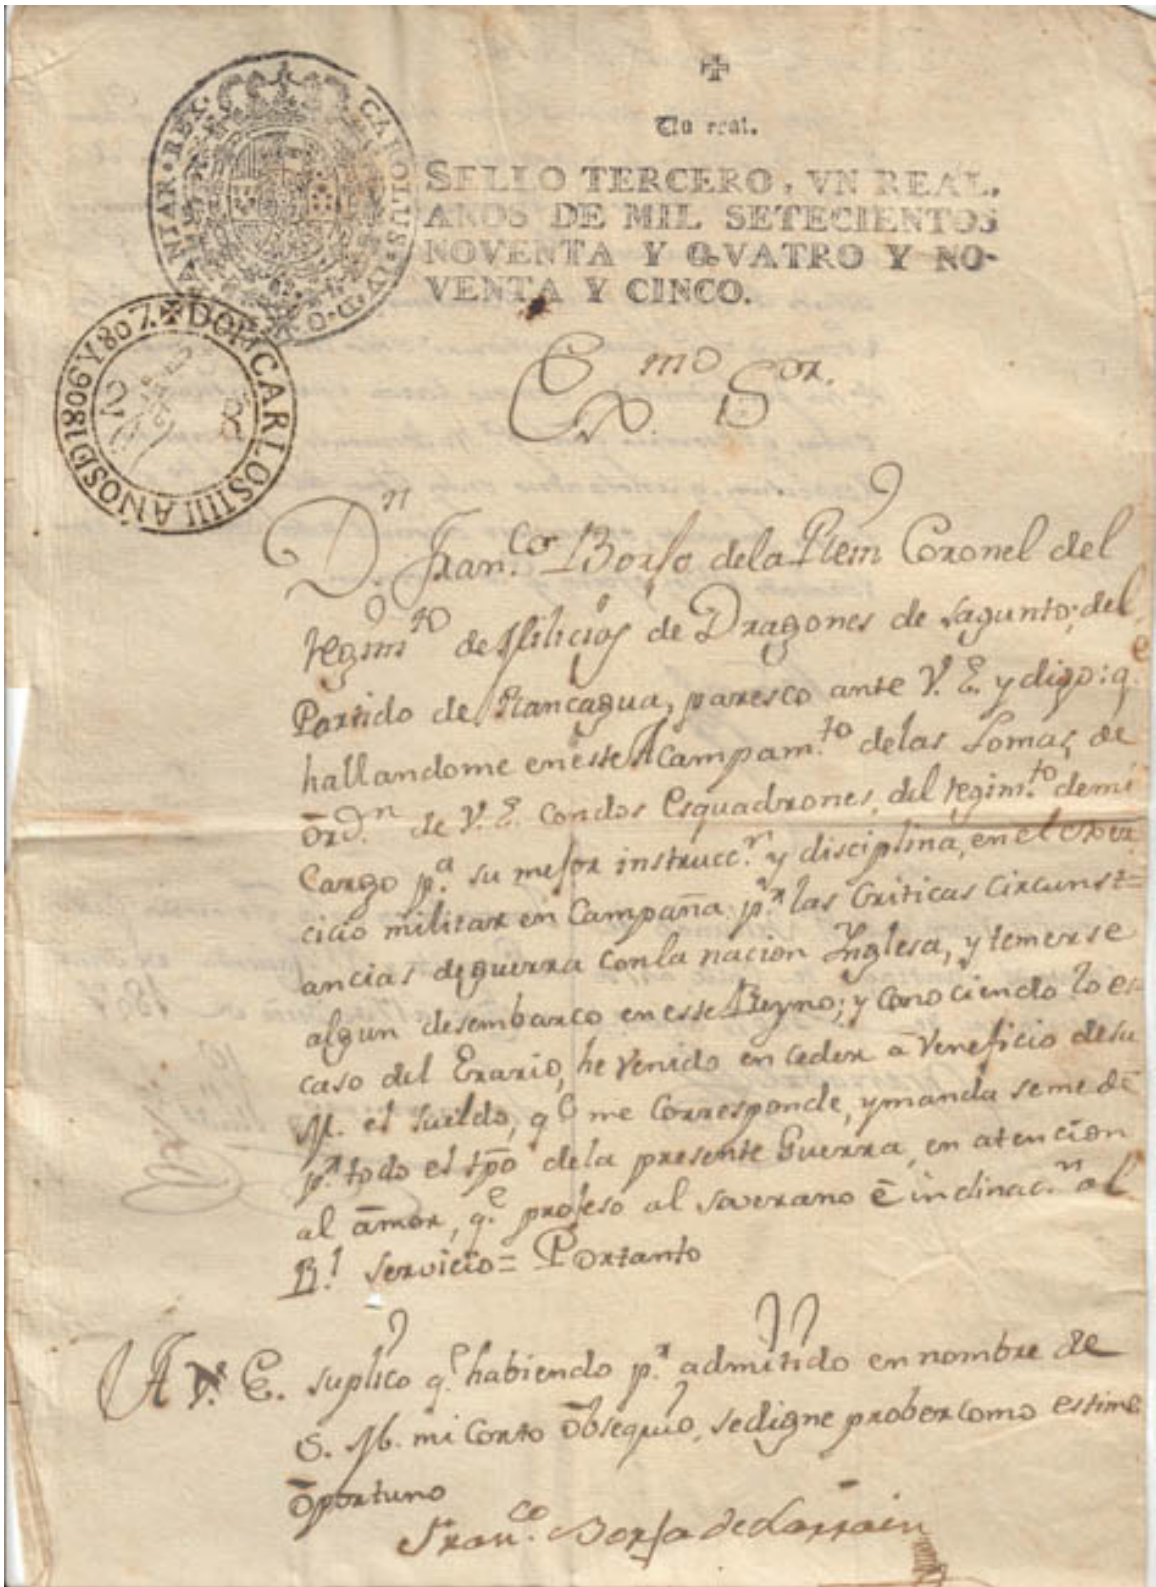 Un real.
SELLO TERCERO, VN REAL,
AÑOS DE MIL SETECIENTOS
NOVENTA Y QVATRO Y NO-
VENTA Y CINCO.
CAROLUS IV D G HISPANIAR REX
DON CARLOS IIII AÑOS D 1806 Y 807
Exmo Sor.
Dn. Franco. Borja de la Coronel del
regimto de Milicias de Dragones de Sagunto, del
Partido de Rancagua, paresco ante V. E. y digo: qe
hallandome en este Acampamto. de las Lomas, de
ordn. de V. E. con dos Esquadrones, del regimto. de mi
Cargo pa. su mejor instruccn. y disciplina, en el exer
cicio militar en Campaña pr. las Criticas Circunst=
ancias de guerra con la nacion Ynglesa, y temerse
algun desembarco en este Reyno; y conociendo lo es-
caso del Erario, he venido en ceder â veneficio de su
M. el sueldo, qe me Corresponde, y manda se me dē
pr. todo el tpō de la presente Guerra, en atencion
al āmor, qe. profeso al soverano ē inclinacn. al
Rl. servicio= Portanto
A V. E. suplico qe. habiendo pr. admitido en nombre de
S. M. mi corto ōbsequio, se digne prober como estime
ōportuno
Franco. Borja de Larrain